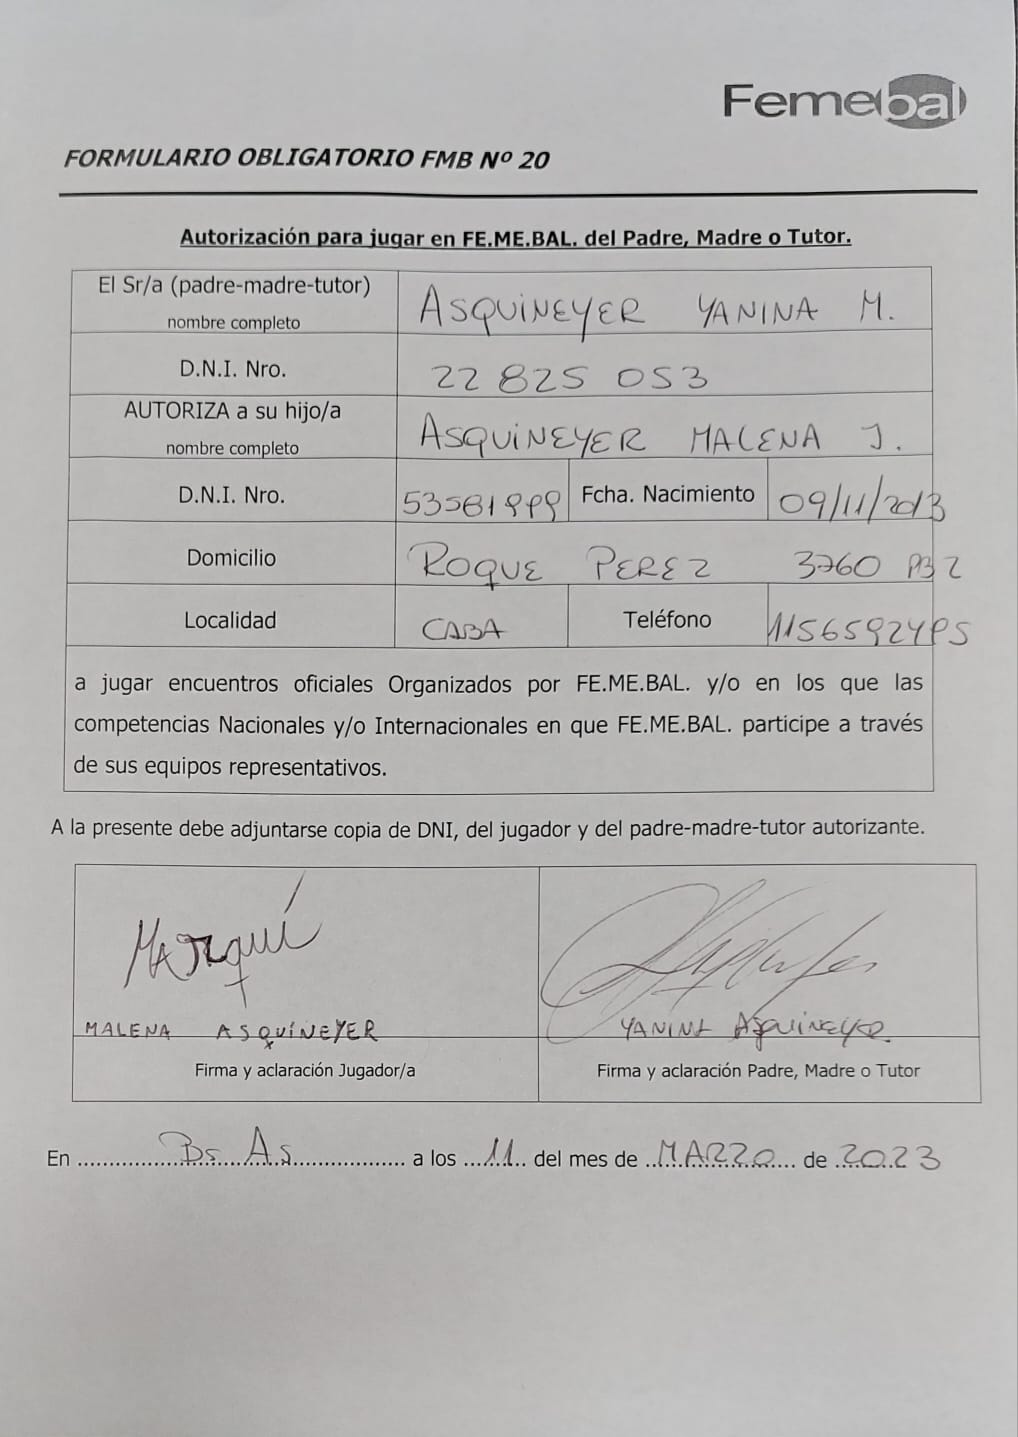 Femebal
FORMULARIO OBLIGATORIO FMB Nº 20
Autorización para jugar en FE.ME.BAL. del Padre, Madre o Tutor.
El Sr/a (padre-madre-tutor) nombre completo ASQUINEYER YANINA M.
D.N.I. Nro. 22 825 053
AUTORIZA a su hijo/a nombre completo ASQUINEYER MALENA J.
D.N.I. Nro. 53581999 Fcha. Nacimiento 09/11/2013
Domicilio ROQUE PEREZ 3760 PB 2
Localidad CABA Teléfono 1156592495
a jugar encuentros oficiales Organizados por FE.ME.BAL. y/o en los que las
competencias Nacionales y/o Internacionales en que FE.ME.BAL. participe a través
de sus equipos representativos.
A la presente debe adjuntarse copia de DNI, del jugador y del padre-madre-tutor autorizante.
MALENA ASQUÍNEYER YANINA ASQUINEYER
Firma y aclaración Jugador/a Firma y aclaración Padre, Madre o Tutor
En Bs As a los 11 del mes de MARZO de 2023